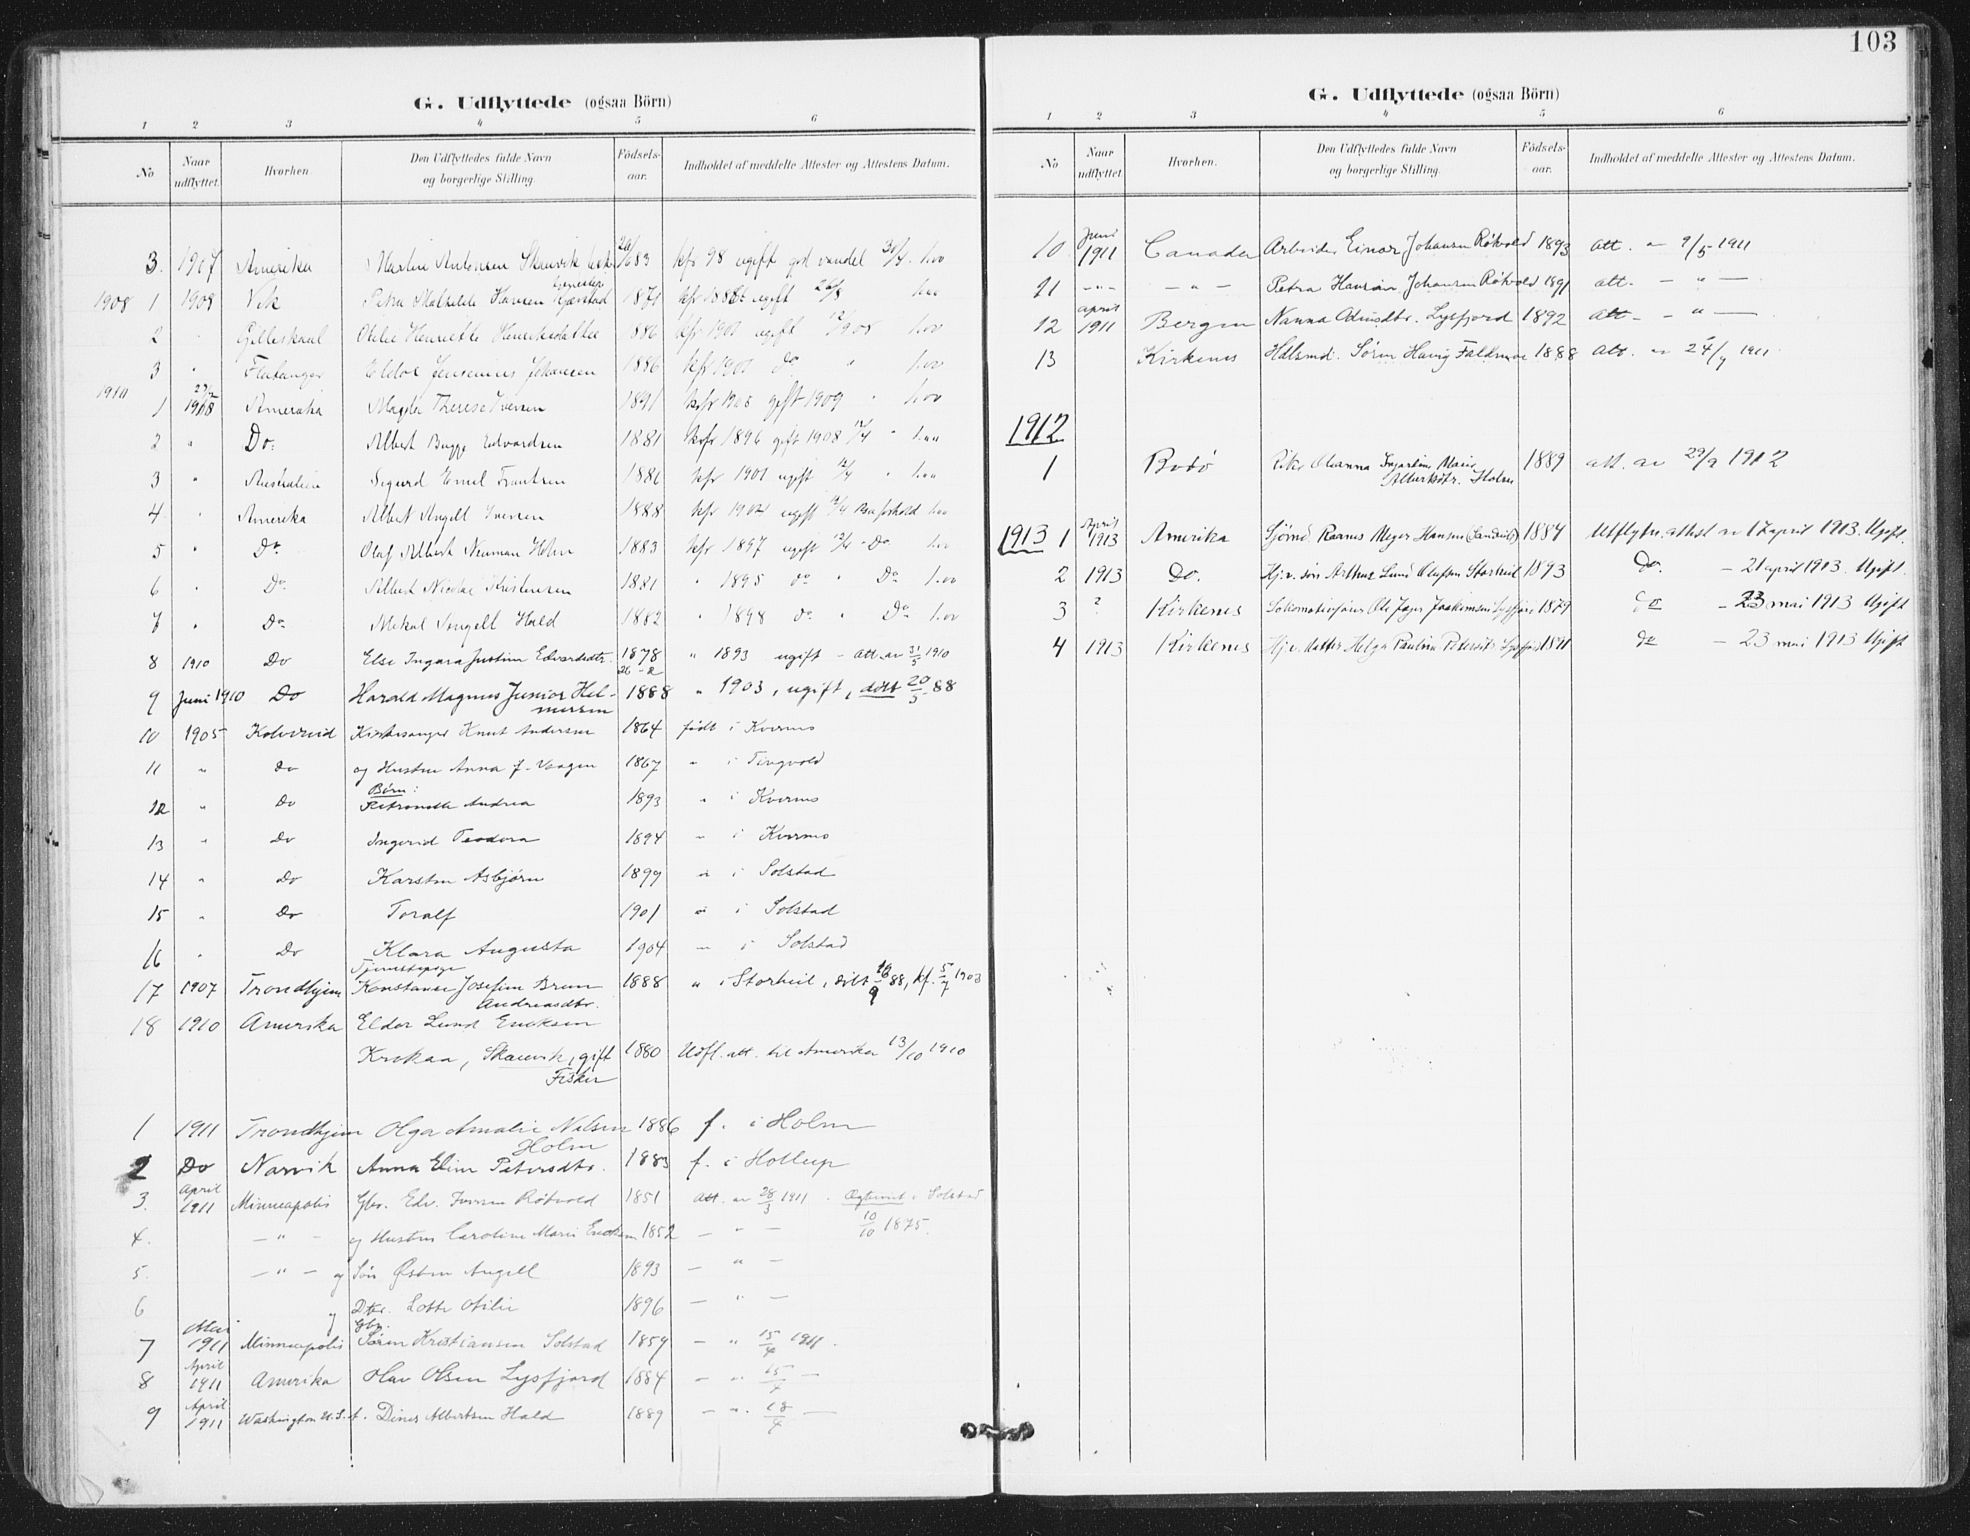 103
G. Udflyttede (ogsaa Börn)
1 2 3 4 5 6
No Naar udflyttet. Hvorhen Den Udflyttedes fulde Navn og borgerlige Stilling. Födsels-aar. Indholdet af meddelte Attester og Attestens Datum.
3. 1907 Amerika Martin Antonsen Skauvik 83 kfr 98 ugift god vandel 1.00
1908 1 1908 Vik Petra Mathilde 1871 ugift 1.00
2 Otelie Henriette 1886 kfr 1901 ugift 1.00
3 " Flatanger Eldor Johansen 1886 kfr 1901 Do 1.00
1910
1 1908 Amerika Magda Therese Iversen 1891 kfr 1905 gift 1909 " 1.00
2 " Do: Albert Bugge Edvardsen 1881 kfr 1896 gift 1908 12/4 " 1.00
3 " Australien Sigurd Emil Frantsen 1886 kfr 1901 ugift 12/4 " 1.00
4 " Amerika Albert Angell Iversen 1888 kfr 1902 ugift 1.00
5 " Do Olaf Albert Neuman Holm 1883 kfr 1897 ugift 12/4 " Do 1.00
6 " Do Albert Nicolai Kristensen 1881 " 1895 do " Do 1.00
7 " Do Mekal Angell Hald 1882 " 1898 do " Do 1.00
8 1910 Do Else Ingara Justine Edvardsdtr. 1878 " 1893 ugift - att. av 31/5 1910
26-2
9 Juni 1910 Do Harald Magnus Junior Hel- 1888 " 1903, ugift, döbt 20/5 88
mersen
10 1905 Kolvereid Kirkesanger Knut Andersen 1864 født i Kvernes
11 " Do og Hustru Anna f. Vaagen 1867 " i Tingvold
Børn:
12 " Do Petronelle Andrea 1893 " i Kvernes
13 " Do Ingerid Teodora 1894 " i Kvernes
14 " Do Karsten Asbjørn 1899 " i Solstad
15 " Do Toralf 1901 " i Solstad
16 " Do Klara Augusta 1904 " i Solstad
Tjenestepige
17 1907 Trondhjem Konstanse Josefine Brun 1888 " i Storheil, döbt 88, kf. 5/7 1903
Andreasdtr.
18 1910 Amerika Eldor Lund Eriksen
Krokaa, Skauvik, gift 1880 Udfl. att. til Amerika 13/10 1910
Fisker
1 1911 Trondhjem Olga Amalie Nilsen 1886 f. i Holm
Holm
2 Do Narvik Anna Eline Petersdtr. 1883 f. i Hollup
3. April 1911 Minneapolis Gbr. Edv. Iversen Røtvold 1851 Att. av 28/3 1911. Ægteviet i Solstad
4. — " — og Hustru Caroline Marie Eriksen 1852 — " — 10/10 1875.
5. — " — og Søn Østen Angell 1893 — " —
6 og Dtr. Lotte Otilie 1896 — " —
Gbr.
7 Mai 1911 Minneapolis Søren Kristiansen Solstad 1859 — " 15/4 1911.
8 April 1911 Amerika Olav Olsen Lysfjord 1884 — " 15/4 —
9 April 1911 Washington U.S.A. Diner Albertsen Hald 1889 — " 18/4 —
G. Udflyttede (ogsaa Börn)
1 2 3 4 5 6
No Naar udflyttet. Hvorhen. Den Udflyttedes fulde Navn og borgerlige Stilling. Födsels-aar. Indholdet af meddelte Attester og Attestens Datum.
10 Juni 1911 Canada Arbeider Einar Johansen Røtvold 1893 att. av 9/5 1911
11 — " — — " — Petra Johansen Røtvold 1891 att. — " —
12 April 1911 Bergen Nanna Lysfjord 1892 att — " —
13 Kirkenes Søren Havig Faldmoe 1888 att. av 24/9 1911.
1912
1 Bodø Pike Ingartine Marie 1889 att. av 29/9 1912
Holm
1913 1 April 1913 Amerika Sjømd. Rasmus Meyer Hansen (Sandvik) 1884 Utflytn. attest av 17 april 1913. Ugift.
2 1913 Do. Hj.v. søn Arthur Lund Olufsen Storheil 1893 Do. — 21 april 1913. Ugift.
3 ? Kirkenes Lokomotivfører Ole Joakimsen Lysfjord 1879 do — 23 mai 1913 Ugift
4 1913 Kirkenes Hj.v. datter Helga Pauline Petersdtr Lysfjord 1891 do — 23 mai 1913 Ugift